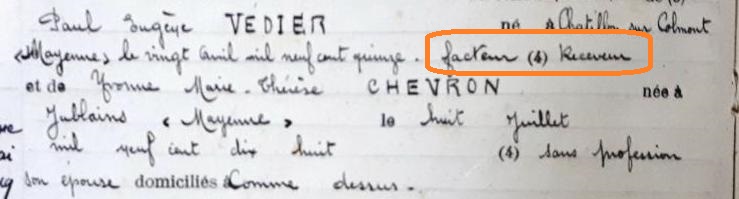 Paul Eugène VEDIER né à Chatillon sur Colmont
(Mayenne) le vingt avril mil neuf cent quinze. facteur (4) Receveur
et de Yvonne Marie-Thérèse CHEVRON née à
Jublains (Mayenne) le huit Juillet
mil neuf cent dix huit (4) sans profession
son épouse domiciliés à Comme dessus.-